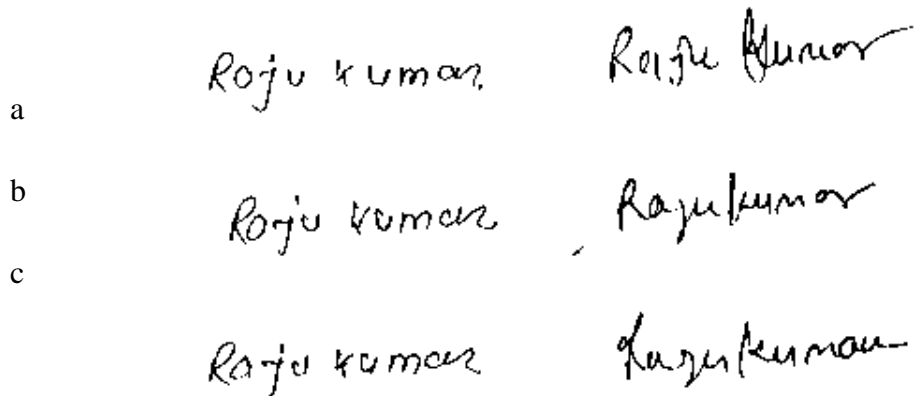 Raju Kumar Raju Kumar
a
b
Raju Kumar Raju Kumar
c
Raju Kumar Raju Kumar